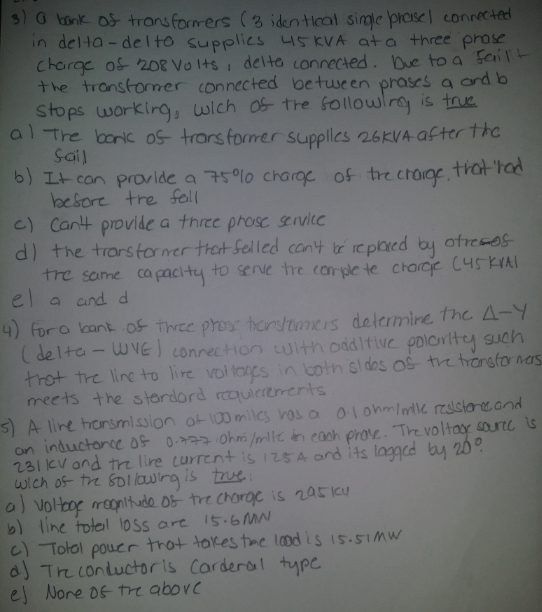 3) a bank of transformers (3 identical single phase) connected
in delta-delta supplies 45 KVA at a three phase
charge of 208 Volts, delta connected. Due to a fail
the transformer connected between phases a and b
stops working, wich of the following is true
a) The bank of transformer supplies 26KVA after the
fail
b) It can provide a 75% charge of the charge that had
before the fail
c) Can't provide a three phase service
d) the transformer that failed can't be replaced by
the same capacity to serve the complete charge (45 KVA)
e) a and d
4) For a bank of three phase transformers determine the Δ-Y
(delta - WYE) connection with additive polarity such
that the line to line voltages in both sides of the transformers
meets the standard requierements
5) A line transmission of 100 miles has a 0.1 ohm/mile resistance and
an inductance of 0.777 ohm/mile in each phase. The voltage source is
231 KV and the line current is 125 A and its lagged by 20°.
wich of the following is true:
a) Voltage magnitude of the charge is 295 kV
b) line total loss are 15.6 MW
c) Total power that takes the load is 15.51 MW
d) The conductor is Carderal type
e) None of the above